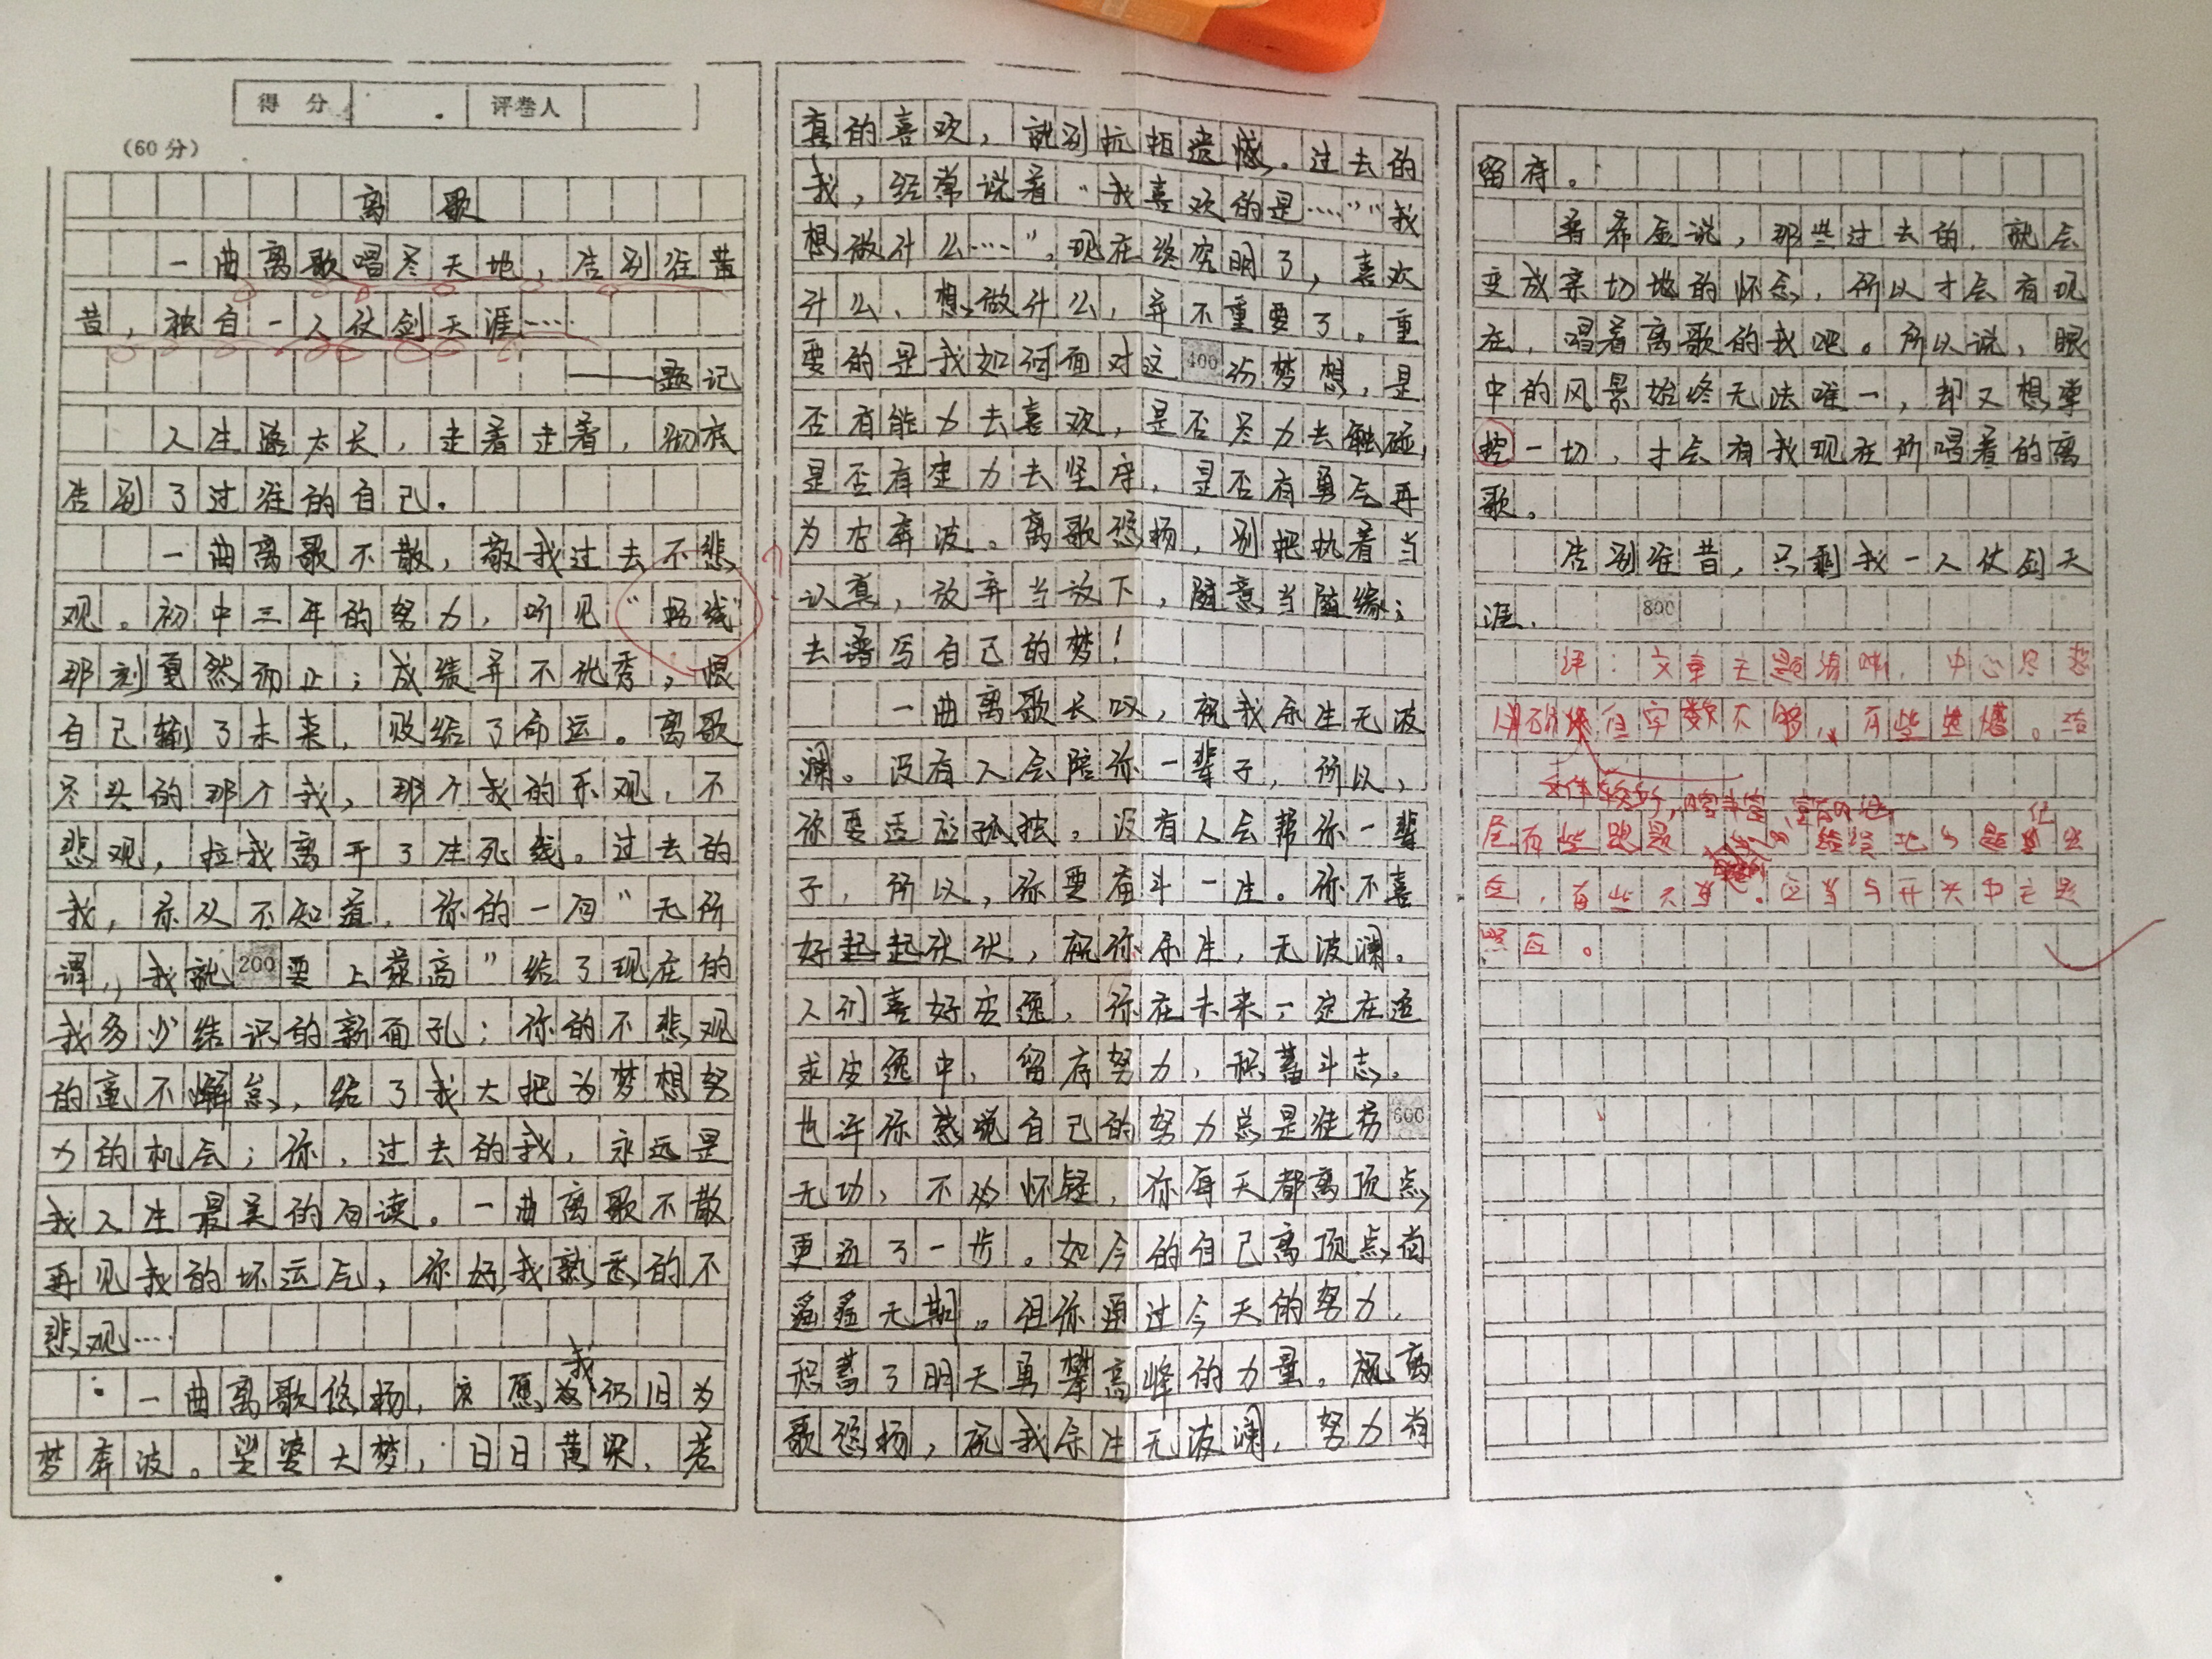 得 分
评卷人
(60分)
离 歌
一曲离歌唱尽天地，告别往昔
昔，独自一人仗剑天涯……
——题记
人生路太长，走着走着，彻底
告别了过往的自己。
一曲离歌不散，敬我过去不悲
观。初中三年的努力，听见“ 线”
那刻戛然而止；成绩并不优秀，恨
自己输了未来，败给了命运。离歌
尽头的那个我，那个我的乐观，不
悲观，拉我离开了生死线。过去的
我，你从不知道，你的一句“无所
谓，我就200要上最高”给了现在的
我多少结识的新面孔；你的不悲观
的毫不懈怠，给了我大把为梦想努
力的机会；你，过去的我，永远是
我人生最美的句读。一曲离歌不散
再见我的坏运气，你好我熟悉的不
悲观……
我
一曲离歌悠扬，应愿 仍旧为
梦奔波。婆婆大梦，日日黄粱，若
真的喜欢，就别抗拒遗憾。过去的
我，经常说着“我喜欢的是……”“我
想做什么……”，现在终究明了，喜欢
什么、想做什么，并不重要了。重
要的是我如何面对这400份梦想，是
否有能力去喜欢，是否尽力去触碰，
是否有定力去坚守，是否有勇气再
为它奔波。离歌悠扬，别把执着当
认真，放弃当放下，随意当随缘；
去谱写自己的梦！
一曲离歌长叹，祝我余生无波
澜。没有人会陪你一辈子，所以，
你要适应孤独。没有人会帮你一辈
子，所以，你要奋斗一生。你不喜
好起起伏伏，祝你余生，无波澜。
人们喜好安逸，你在未来一定在追
求安逸中，留存努力，积蓄斗志。
也许你感觉自己的努力总是徒劳600
无功，不必怀疑，你每天都离顶点
更近了一步。如今的自己离顶点尚
遥遥无期。但你通过今天的努力，
积蓄了明天勇攀高峰的力量。祝离
歌悠扬，祝我余生无波澜，努力尚
留存。
普希金说，那些过去的，就会
变成亲切地的怀念，所以才会有现
在，唱着离歌的我吧。所以说，眼
中的风景始终无法唯一，却又想掌
控一切，才会有我现在所唱着的离
歌。
告别往昔，只剩我一人仗剑天
涯。 800
评：文章主题清晰，中心思想
明确 但字数不够，有些遗憾。结
文体较好，内容丰富，
尾有些跑题
，有些不 。应当与开头中主题
照应。